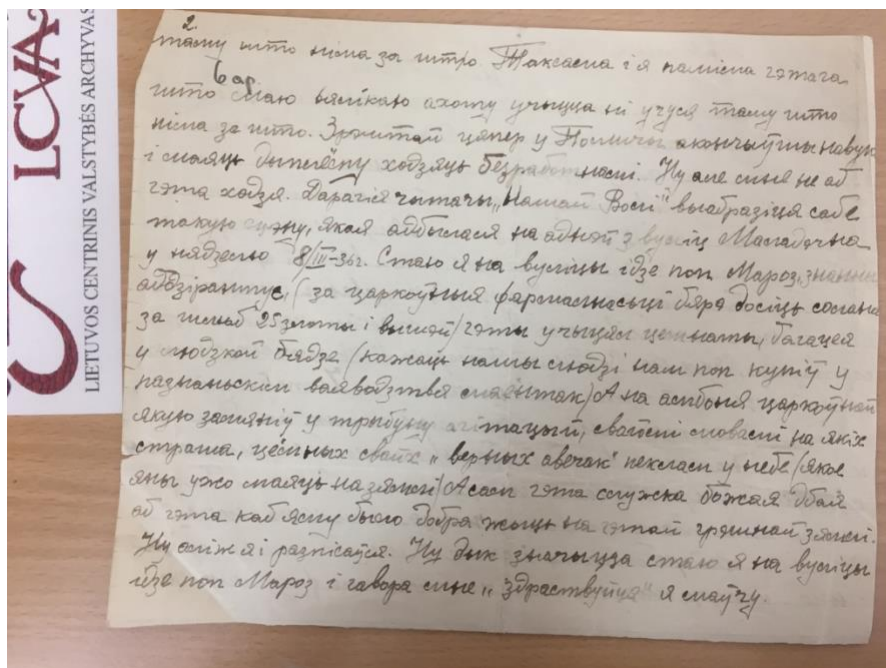 LCVA
LIETUVOS CENTRINIS VALSTYBĖS ARCHYVAS
2.
таму што няма за што. Таксама і я памима гэтага
што маю вялікаю ахоту учыцца ні учуся таму што
няма за што. Зрэштай цяпер у Польшчы акончыўшы навук
і маяць дыплёму ходзяць безработнымі. Ну але мне не аб
гэта ходзя. Дарагія чытачы „Нашай Волі" выабразіця сабе
такую сцэну, якая адбылася на адной з вуліц Маладэчна
у нядзелю 8/III-36г. Стаю я на вуліцы ідзе поп Мароз, знаны
абдзірантус, (за царкоўныя бяра досіць
за шлюб 25 злоты і вышэй) гэты учыцяль цемнаты, багацея
у людзкой бядзе (кажаць нашы людзі нам поп купіў у
пазнаньскім ваяводзтвя маёнтак) А на амбоня царкоўнай
якую замяніў у трыбуну агітацый, сваімі словамі на якіх
страша, цёмных сваіх „верных авечак" пеклам у небе (якое
яны ужо маяць на зямлі) А сам гэта служка божая дбай
аб гэта каб яму было добра жыць на гэтай грэшнай зямлі.
Ну але ж я і разпісаўся. Ну дык значыцца стаю я на вуліцы
ідзе поп Мароз і гавора мне „здраствуйця" я маўчу.